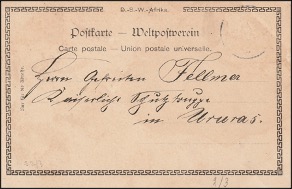 D.-S.-W.-Afrika.
Postkarte — Weltpostverein
Carte postale — Union postale universelle.
Herrn Gefreiten Fellmer
Kaiserliche Schutztruppe
in Ururas.
1/3